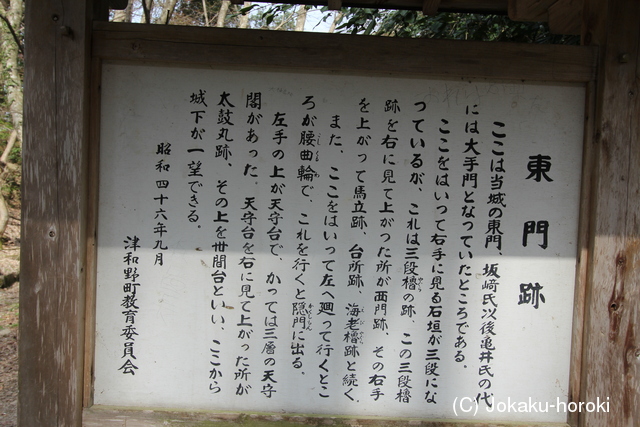 東門跡
ここは当城の東門、坂﨑氏以後亀井氏の代
には大手門となっていたところである。
ここをはいって右手に見る石垣が三段にな
っているが、これは三段櫓の跡、この三段櫓
跡を右に見て上がった所が西門跡、その右手
を上がって馬立跡、台所跡、海老櫓跡と続く。
また、ここをはいって左へ廻って行くとこ
ろが腰曲輪で、これを行くと隠門に出る。
左手の上が天守台で、かっては三層の天守
閣があった。天守台を右に見て上がった所が
太鼓丸跡、その上を丗間台といい、ここから
城下が一望できる。
昭和四十六年九月
津和野町教育委員会
(C) Jokaku-horoki